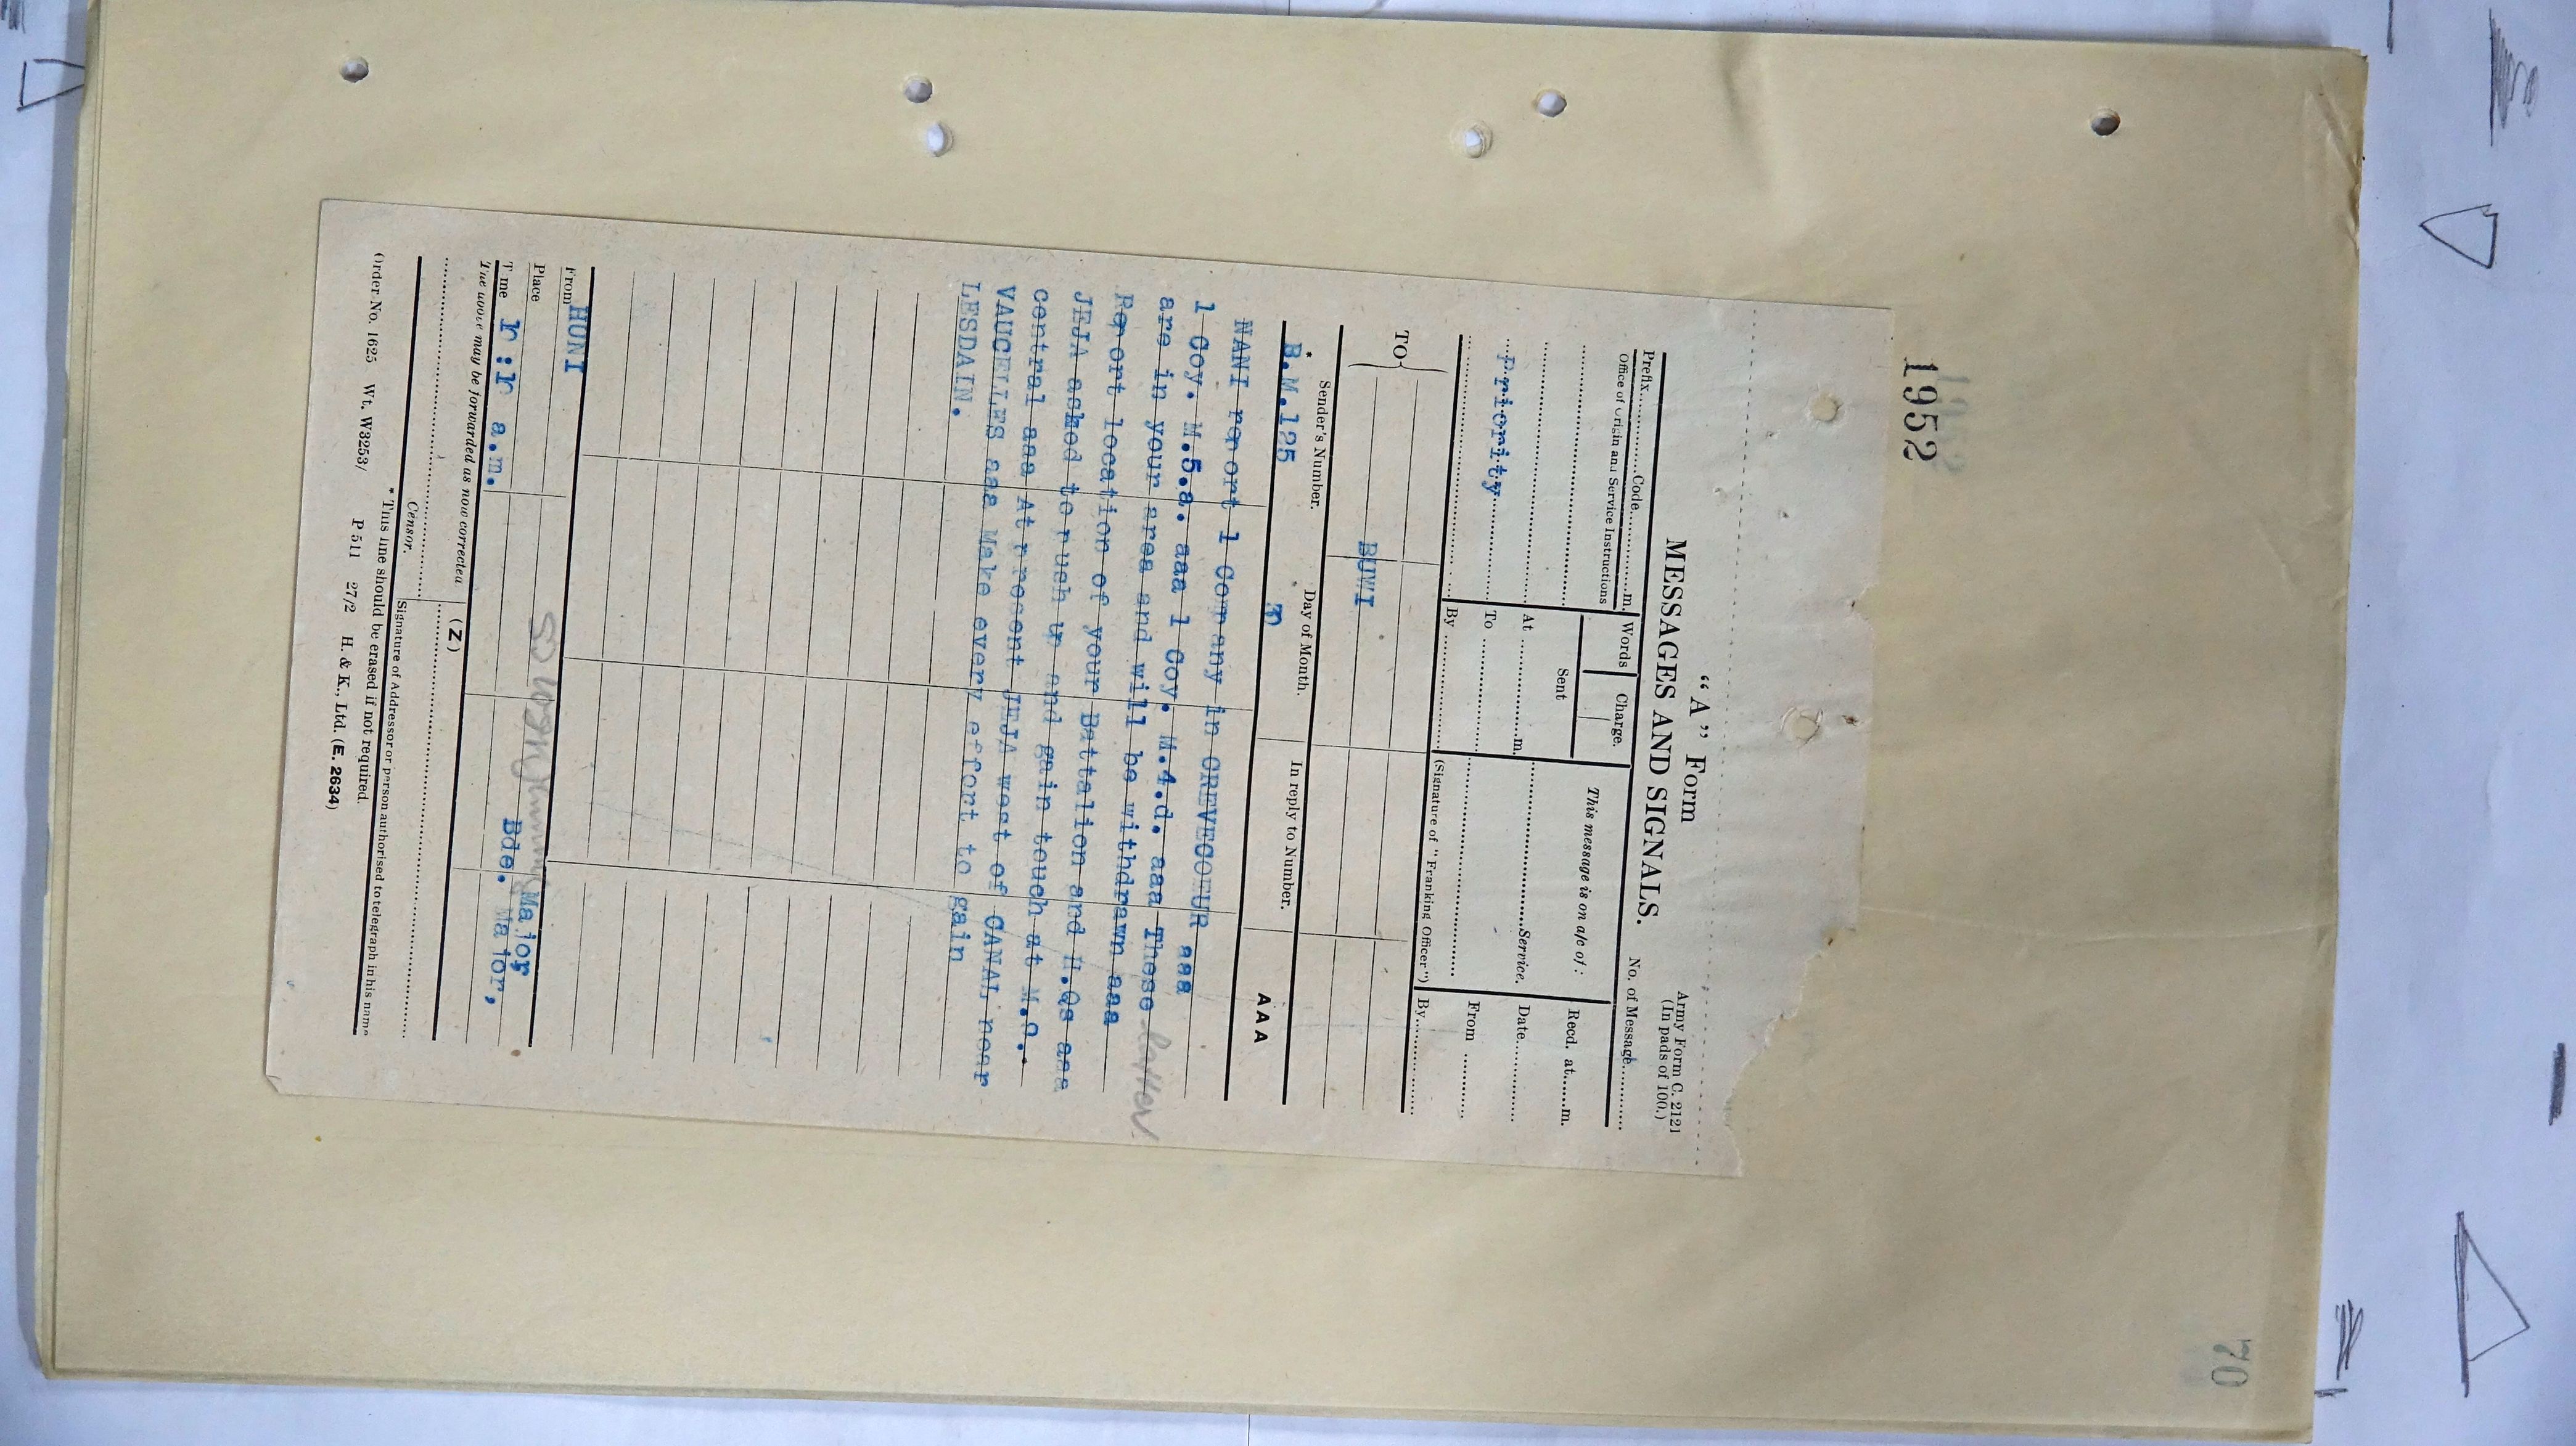 1952
70
"A" Form
Army Form C. 2121
(In pads of 100.)
MESSAGES AND SIGNALS.
No. of Message............
Prefix............Code............m.
Office of Origin and Service Instructions
Words
Charge.
This message is on a/c of :
Recd. at......m.
Sent
At ...............m.
...............Service.
Date...............
Priority
To ...............
From ............
By ...............
(Signature of "Franking Officer")
By...............
TO
BUWI
Sender's Number.
Day of Month.
In reply to Number.
AAA
* B.M.125
3
NANI report 1 Company in CREVECOEUR aaa
1 Coy. M.5.a. aaa 1 Coy. M.4.d. aaa These latter
are in your area and will be withdrawn aaa
Report location of your Battalion and H.Qs aaa
JEJA asked to push up and gain touch at
central aaa At present JEJA west of CANAL near
VAUCELLES aaa Make every effort to gain
LESDAIN.
From HUNI
Place
Major
Time a.m.
Bde. Major,
The above may be forwarded as now corrected
(Z)
Censor.
Signature of Addressor or person authorised to telegraph in his name
* This line should be erased if not required.
Order No. 1625 Wt. W3253/ P 511 27/2 H. & K., Ltd. (E. 2634)